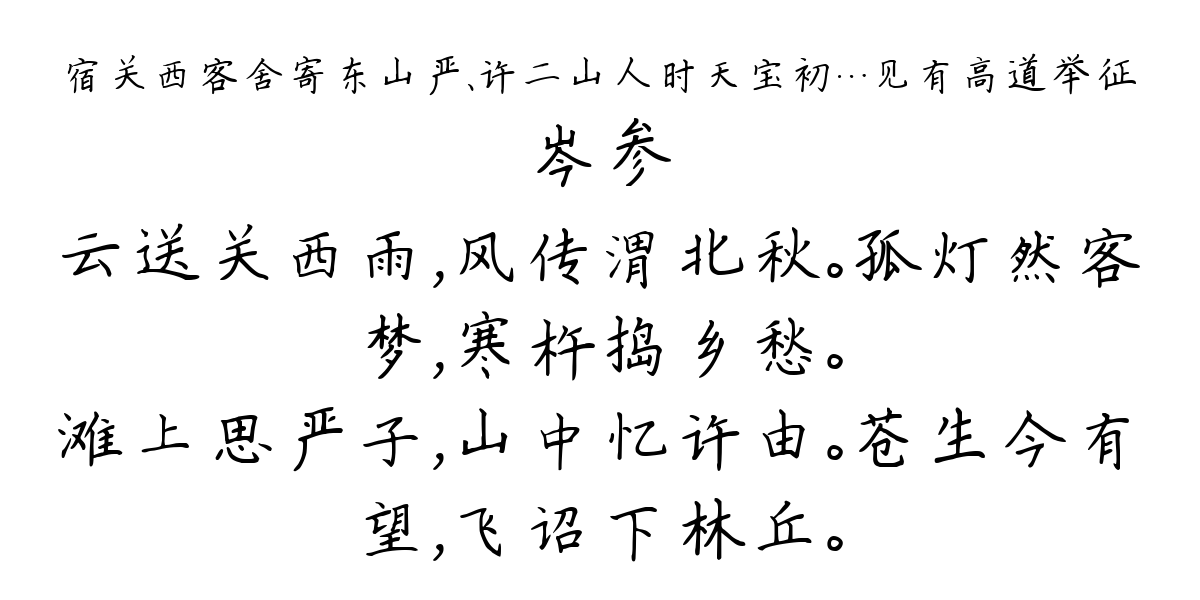 宿关西客舍寄东山严、许二山人时天宝初…见有高道举征
岑参
云送关西雨,风传渭北秋。孤灯然客
梦,寒杵捣乡愁。
滩上思严子,山中忆许由。苍生今有
望,飞诏下林丘。